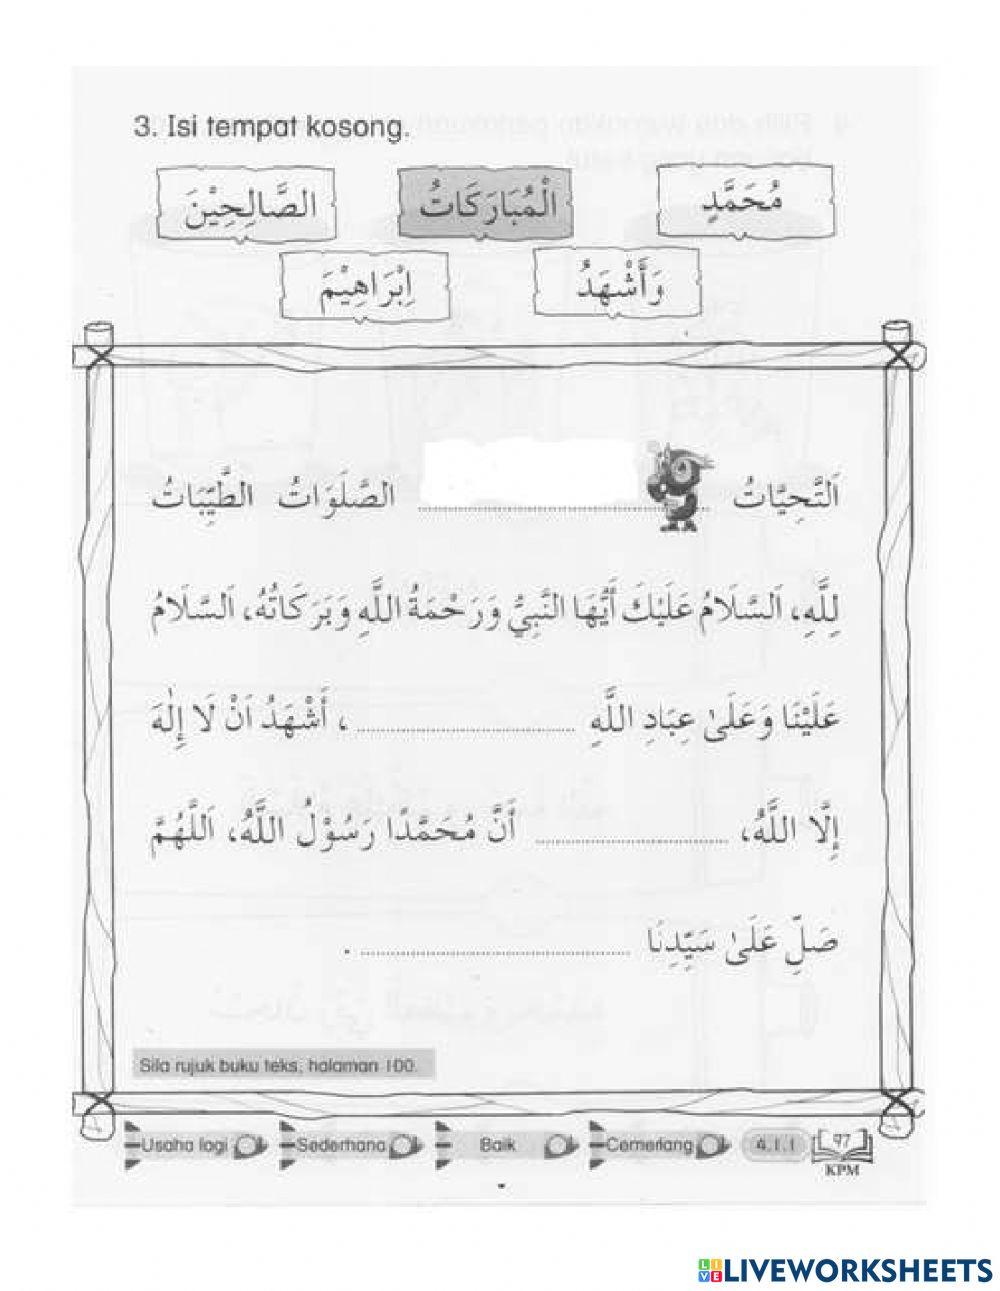 3. Isi tempat kosong.
مُحَمَّدٍ الْمُبَارَكَاتُ الصَّالِحِيْنَ
وَأَشْهَدُ اِبْرَاهِيْمَ
اَلتَّحِيَّاتُ ........ الصَّلَوَاتُ الطَّيِّبَاتُ
لِلَّهِ، اَلسَّلَامُ عَلَيْكَ أَيُّهَا النَّبِيُّ وَرَحْمَةُ اللَّهِ وَبَرَكَاتُهُ، اَلسَّلَامُ
عَلَيْنَا وَعَلَىٰ عِبَادِ اللَّهِ ........ ، أَشْهَدُ اَنْ لَا إِلٰهَ
إِلَّا اللَّهُ، ........ أَنَّ مُحَمَّدًا رَسُوْلُ اللَّهُ، اَللَّهُمَّ
صَلِّ عَلَىٰ سَيِّدِنَا ........ .
Sila rujuk buku teks, halaman 100.
Usaha lagi Sederhana Baik Cemerlang 4.1.1 97
KPM
LIVEWORKSHEETS